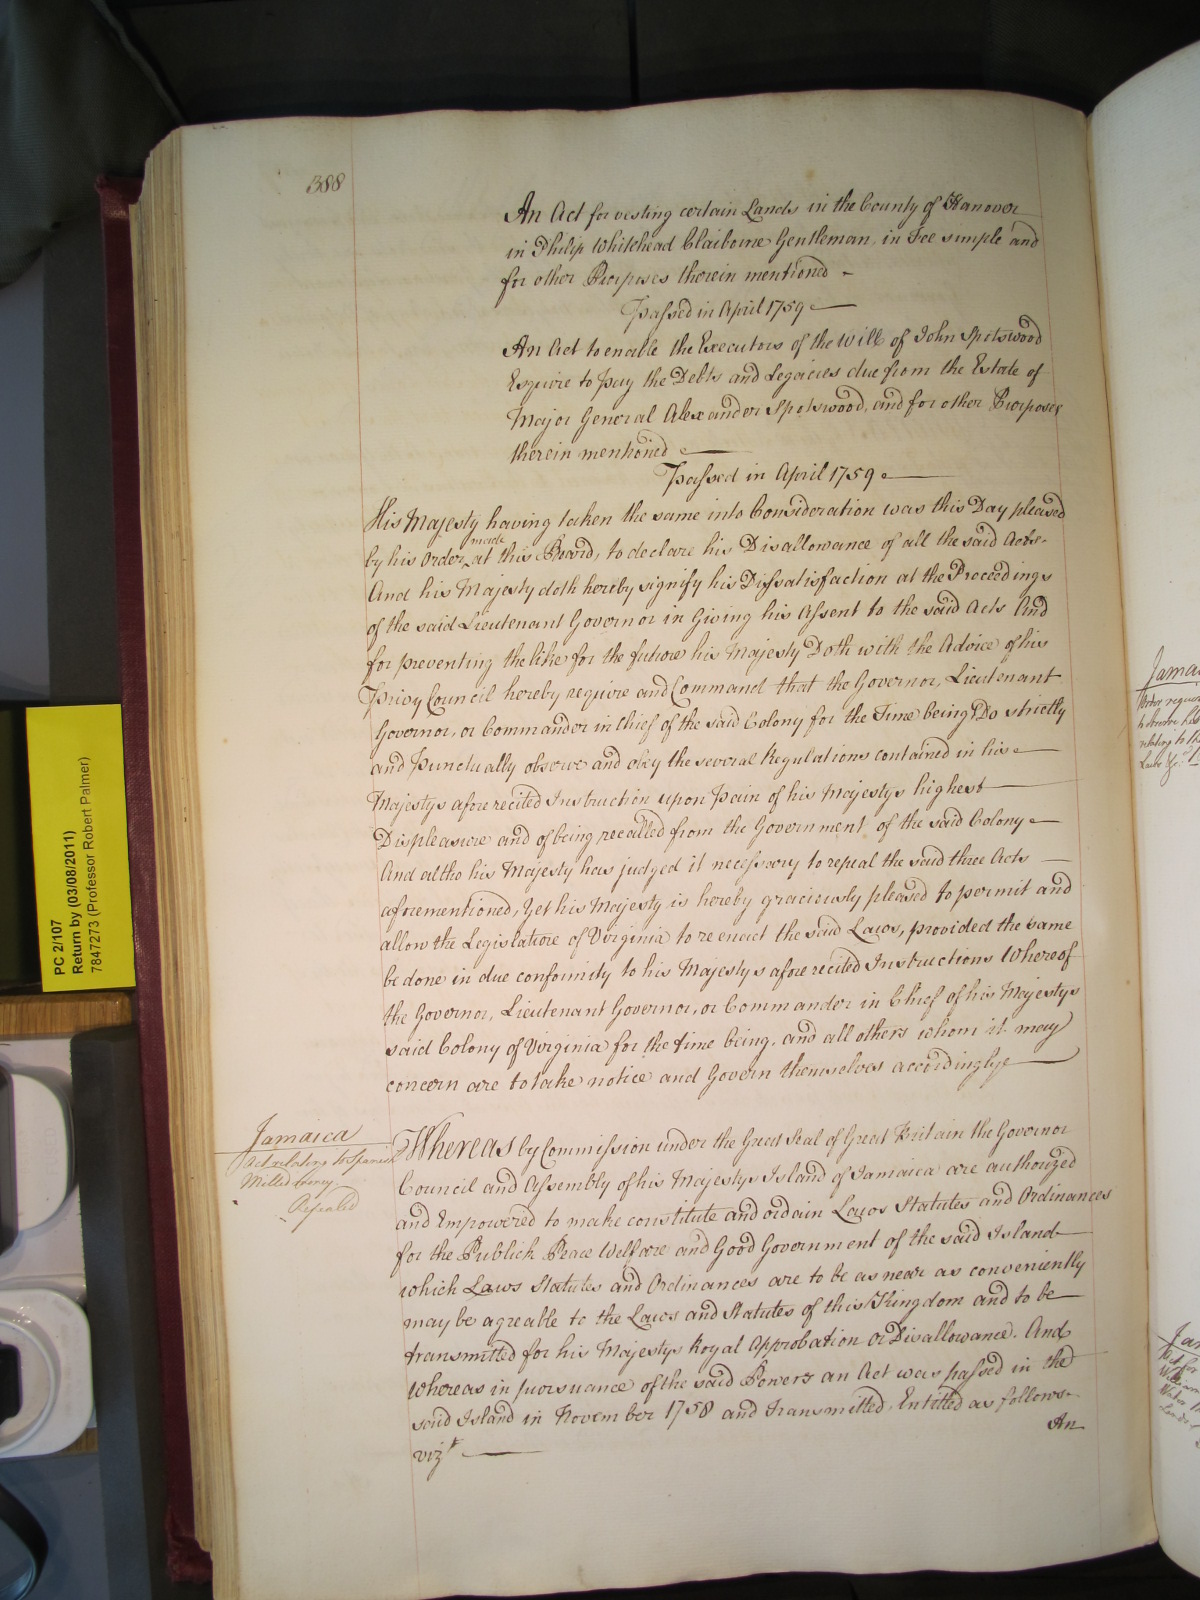 388
An Act for vesting certain Lands in the County of Hanover
in Philip Whitehead Claiborne Gentleman, in Fee simple and
for other Purposes therein mentioned -
Passed in April 1759
An Act to enable the Executors of the Will of John Spotswood
Esquire to pay the Debts and Legacies due from the Estate of
Major General Alexander Spotswood, and for other Purposes
therein mentioned
Passed in April 1759
His Majesty having taken the same into Consideration was this Day pleased
by his Order made at this Board, to declare his Disallowance of all the said Acts.
And his Majesty doth hereby signify his Dissatisfaction at the Proceedings
of the said Lieutenant Governor in Giving his Assent to the said Acts And
for preventing the like for the future his Majesty Doth with the Advice of his
Privy Council hereby require and Command that the Governor, Lieutenant
Governor, or Commander in Chief of the said Colony for the Time being Do strictly
and Punctually observe and obey the several Regulations contained in his
Majestys aforerecited Instruction upon Pain of his Majestys highest
Displeasure and of being recalled from the Government of the said Colony
And altho his Majesty has judged it necessary to repeal the said three Acts
aforementioned, Yet his Majesty is hereby graciously pleased to permit and
allow the Legislature of Virginia to re enact the said Laws, provided the same
be done in due conformity to his Majestys aforerecited Instructions Whereof
the Governor, Lieutenant Governor, or Commander in Chief of his Majestys
said Colony of Virginia for the time being, and all others whom it may
concern are to take notice and Govern themselves accordingly
Jamaica
Act relating to Spanish
Milled Money
Repealed
Whereas by Commission under the Great Seal of Great Britain the Governor
Council and Assembly of his Majestys Island of Jamaica are authorized
and Empowered to make constitute and ordain Laws Statutes and Ordinances
for the Publick Peace Welfare and Good Government of the said Island
which Laws Statutes and Ordinances are to be as near as conveniently
may be agreable to the Laws and Statutes of this Kingdom and to be
transmitted for his Majestys Royal Approbation or Disallowance. And
whereas in pursuance of the said Powers an Act was passed in the
said Island in November 1758 and transmitted, Entitled as follows
vizt
An
PC 2/107
Return by (03/08/2011)
7847273 (Professor Robert Palmer)